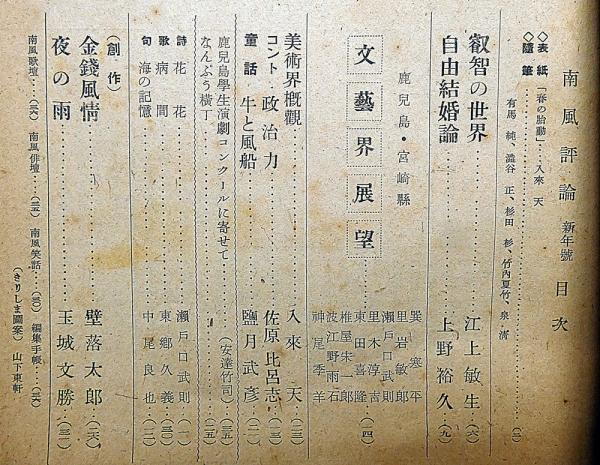 南風評論 新年號 目次
◇表紙「春の胎動」…入來 天
◇隨筆
有馬純、澁谷正、杉田杉、竹内夏竹、泉清……(二)
叡智の世界……江上敏生(六)
自由結婚論……上野裕久(九)
鹿兒島・宮崎縣
文藝界展望……(一四)
巽寒平
里岩敏郎
瀬戸口武則
里木淳吉
東田喜隆
椎屋朱一郎
波江野雨石
神尾季羊
美術界概觀……入來 天(二三)
コント 政治力……佐原比呂志(二三)
童話 牛と風船……鹽月武彦(二二)
鹿兒島學生演劇コンクールに寄せて……(安達竹司)(三五)
なんぷう横丁……(五)
詩 花 花……瀬戸口武則(一)
歌 病間……東郷久義(三〇)
句 海の記憶……中尾良也(二一)
(創作)
金錢風情……壁落太郎(二六)
夜の雨……玉城文勝(三一)
南風歌壇…(三六) 南風俳壇…(三五) 南風笑話…(三〇) 編集手帳…(三六)
(きりしま圖案) 山下東軒